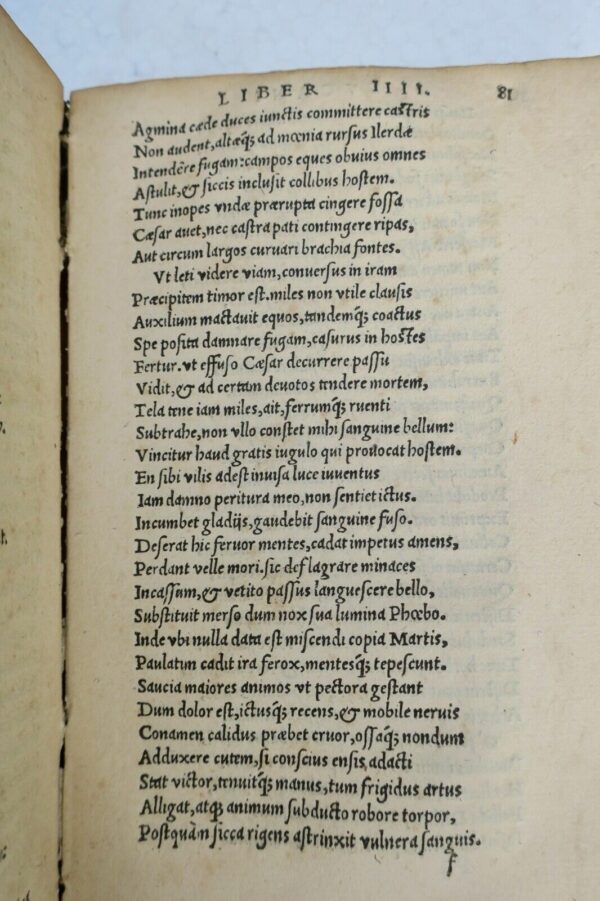 LIBER IIII. 81
Agmina cæde duces iunctis committere castris
Non audent, altæq; ad mœnia rursus Ilerdæ
Intendere fugam: campos eques obuius omnes
Astulit, & siccis inclusit collibus hostem.
Tunc inopes vndæ prærupta cingere fossa
Cæsar auet, nec castra pati contingere ripas,
Aut circum largos curuari brachia fontes.
Vt leti videre viam, conuersus in iram
Præcipitem timor est. miles non vtile clausis
Auxilium mactauit equos, tandemq; coactus
Spe posita damnare fugam, casurus in hostes
Fertur. vt effuso Cæsar decurrere passu
Vidit, & ad certam deuotos tendere mortem,
Tela tene iam miles, ait, ferrumq; ruenti
Subtrahe, non vllo constet mihi sanguine bellum:
Vincitur haud gratis iugulo qui prouocat hostem.
En sibi vilis adest inuisa luce iuuentus
Iam damno peritura meo, non sentiet ictus.
Incumbet gladijs, gaudebit sanguine fuso.
Deserat hic feruor mentes, cadat impetus amens,
Perdant velle mori. sic deflagrare minaces
Incassum, & vetito passus languescere bello,
Substituit merso dum nox sua lumina Phœbo.
Inde vbi nulla data est miscendi copia Martis,
Paulatim cadit ira ferox, mentesq; tepescunt.
Saucia maiores animos vt pectora gestant
Dum dolor est, ictusq; recens, & mobile neruis
Conamen calidus præbet cruor, ossaq; nondum
Adduxere cutem, si conscius ensis adacti
Stat victor, tenuitq; manus, tum frigidus artus
Alligat, atq; animum subducto robore torpor,
Postquàm sicca rigens astrinxit vulnera sanguis.
f